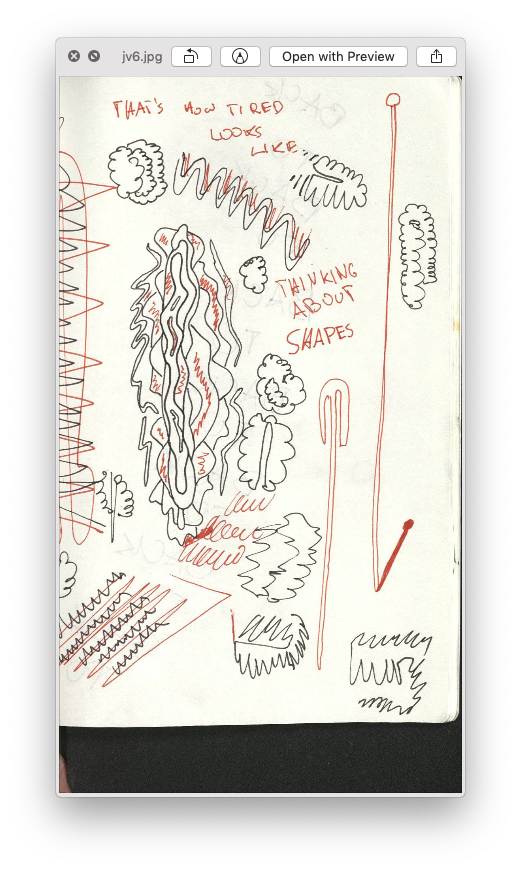 jv6.jpg
Open with Preview
THAT'S HOW TIRED
LOOKS
LIKE..
THINKING
ABOUT
SHAPES